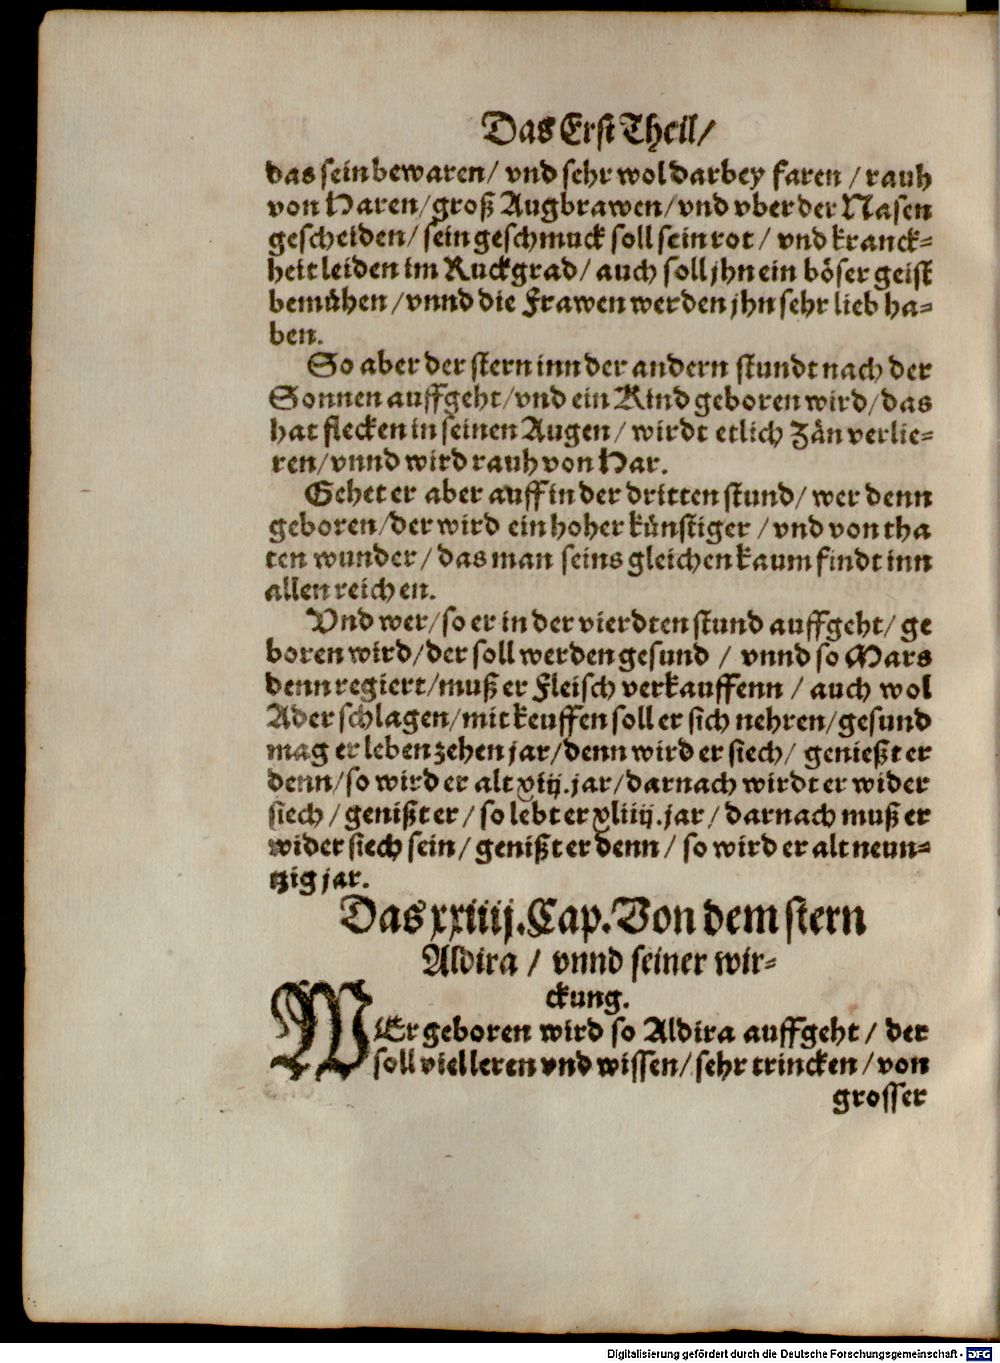 Das Erst Theil/
das sein bewaren/ vnd sehr wol darbey faren / rauh
von Haren/groß Augbrawen/vnd vber der Nasen
gescheiden/ sein geschmuck soll sein rot / vnd kranck-
heit leiden im Ruckgrad/ auch soll jhn ein böser geist
bemühen /vnnd die Frawen werden jhn sehr lieb ha-
ben.
So aber der stern inn der andern stundt nach der
Sonnen auffgeht/vnd ein Kind geboren wird/das
hat flecken in seinen Augen / wirdt etlich Zän verlie-
ren/vnnd wird rauh von Har.
Gehet er aber auff in der dritten stund/ wer denn
geboren/der wird ein hoher künstiger /vnd von tha
ten wunder /das man seins gleichen kaum findt inn
allen reichen.
Vnd wer/so er in der vierdten stund auffgeht/ ge
boren wird/der soll werden gesund / vnnd so Mars
denn regiert/muß er Fleisch verkauffenn / auch wol
Ader schlagen/mit keuffen soll er sich nehren/gesund
mag er leben zehen jar/denn wird er siech/ genießt er
denn/so wird er alt xiij.jar/darnach wirdt er wider
siech /genißt er/ so lebt er xliiij.jar/darnach muß er
wider siech sein/ genißt er denn/ so wird er alt neun-
tzig jar.
Das xxiiij.Cap.Von dem stern
Aldira / vnnd seiner wir-
ckung.
WEr geboren wird so Aldira auffgeht / der
soll viel leren vnd wissen/sehr trincken /von
grosser
Digitalisierung gefördert durch die Deutsche Forschungsgemeinschaft - DFG